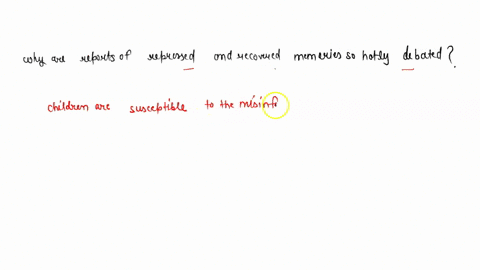 why are reports of repressed and recovered memeries so hotly debated?
children are susceptible to the misinfo